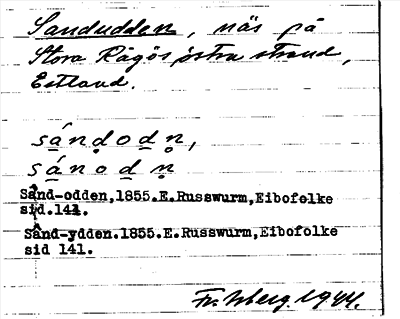 Sandudden, näs på
Stora Rågös östra strand,
Estland.
sá̱ndo̱dn̥,
sá̱nodn̥
Sand-odden,1855.E.Russwurm,Eibofolke
sid.141.
Sand-ydden.1855.E.Russwurm,Eibofolke
sid 141.
1944.